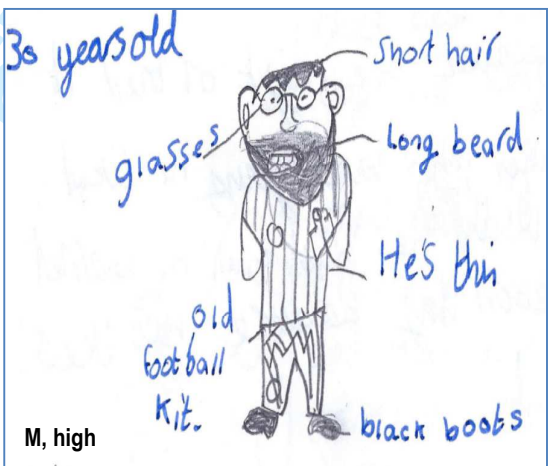 30 years old
short hair
glasses
Long beard
He's thin
old
football
Kit.
black boots
M, high